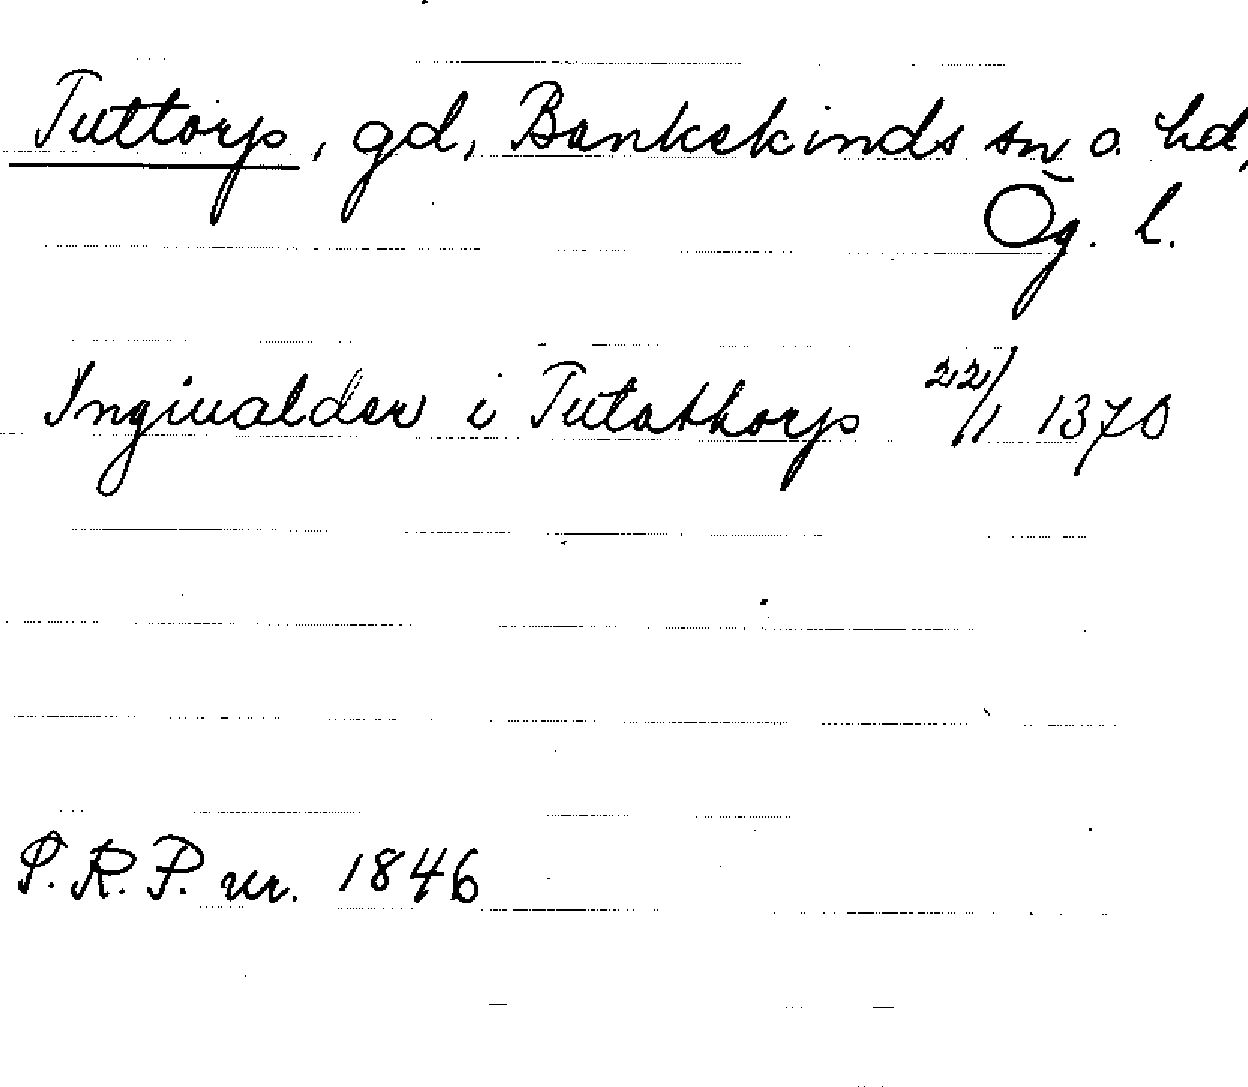 Tuttorp, gd, Bankekinds sn o. hd,
Ög. l.
Ingiualder i Tutathorp 22/1 1370
S.R.P. nr. 1846